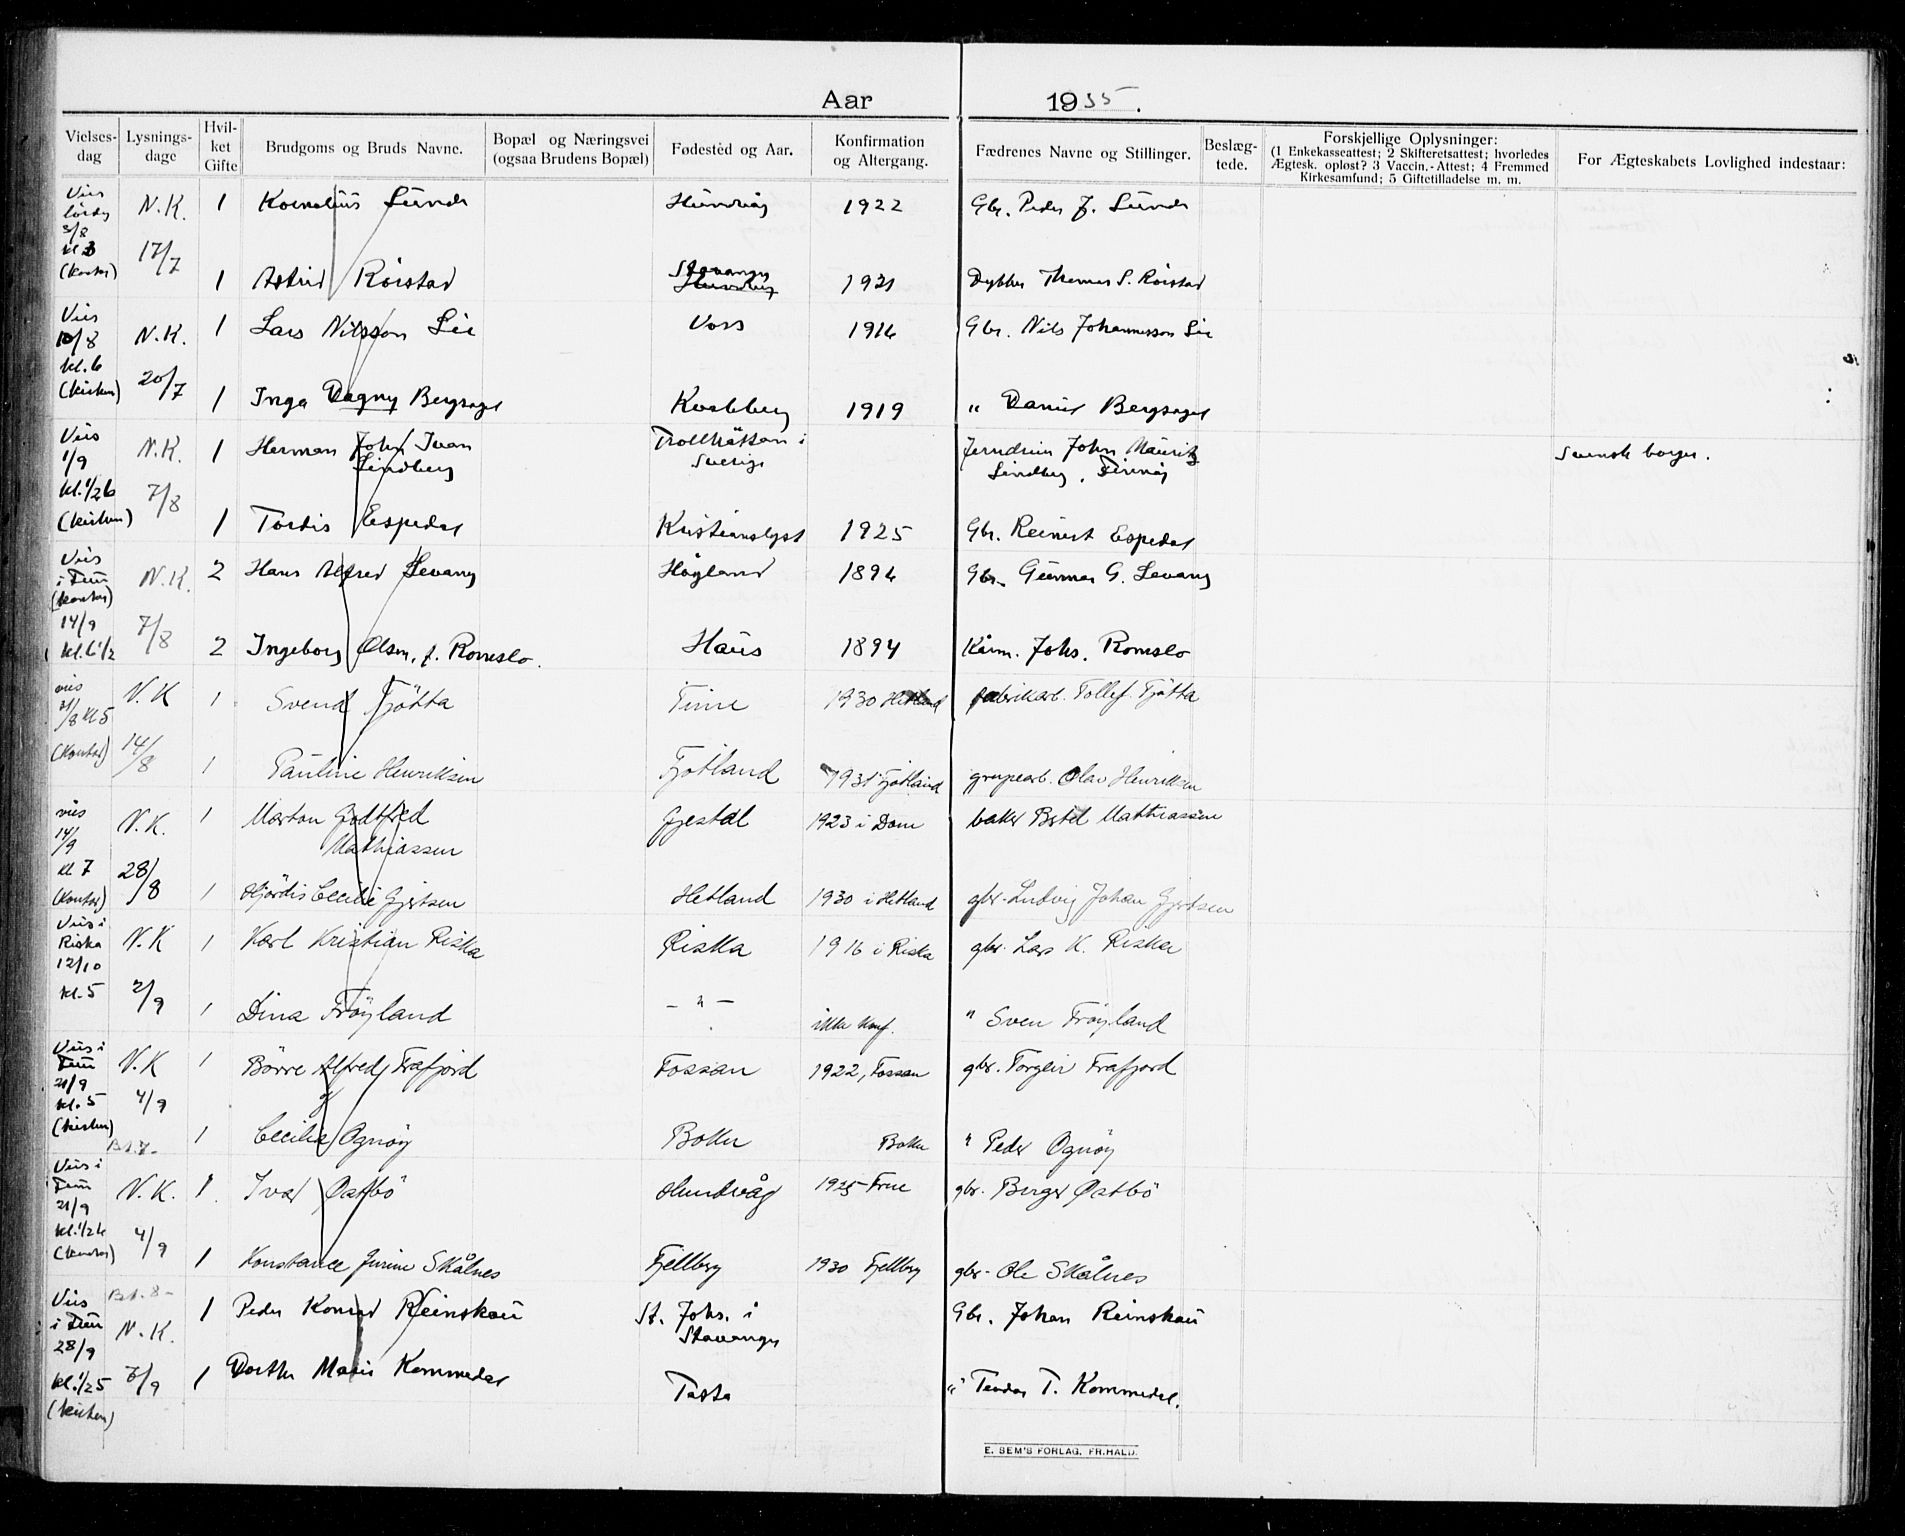 Aar 1935.
Vielses-dag Lysnings-dage Hvil-ket Gifte Brudgoms og Bruds Navne. Bopæl og Næringsvei (ogsaa Brudens Bopæl) Fødested og Aar. Konfirmation og Altergang. Fædrenes Navne og Stillinger. Beslæg-tede. Forskjellige Oplysninger: (1 Enkekasseattest; 2 Skifteretsattest; hvorledes Ægtesk. opløst? 3 Vaccin.-Attest; 4 Fremmed Kirkesamfund; 5 Giftetilladelse m. m. For Ægteskabets Lovlighed indestaar:
Vies lördag 3/8 kl 3 (kontor) N.K. 17/7
1 Kornelius Lunde Hundvåg 1922 Gbr. Peder J. Lunde
1 Astrid Rörstad Stavanger Hundvåg 1921 Thomas S. Rörstad
Vies 10/8 kl. 6 (kirken) N.K. 20/7
1 Lars Nilsson Lie Voss 1916 Gbr. Nils Johannesson Lie
1 Inga Dagny Bergsagel 1919 " Daniel Bergsagel
Vies 1/9 kl. 1/2 6 (kirken) N.K. 7/8
1 Herman John Ivan Lindberg Trollhättan i Sverige John Mauritz Lindberg, Svensk borger.
1 Tordis Espedal Kristianslyst 1925 Gbr. Reinert Espedal
Vies i Frue (kontor) 14/9 kl. 6 1/2 N.K. 7/8
2 Hans Alfred Levang Högland 1894 Gbr. Gunnar G. Levang
2 Ingeborg Olsen, f. Romslo. Haus 1894 Joh<s>. Romslo
vies 31/8 kl 5 (Kontor) N.K 14/8
1 Svend Tjötta Time 1930 Hetland fabrikarb. Tollef Tjötta
1 Pauline Henriksen Fjotland 1931 Fjotland grupearb. Olav Henriksen
vies 14/9 kl 7 (Kontor) N.K. 28/8
1 Morton Godtfred Mathiassen Gjestal 1923 i Dom baker Bertel Matthiassen
1 Hjördis Cecilie Gjertsen Hetland 1930 i Hetland gbr. Ludvig Johan Gjertsen
Vies i Riska 12/10 kl. 5 N.K 2/9
1 Karl Kristian Riska Riska 1916 i Riska gbr. Lars K. Riska
1 Dina Fröyland — " — ikke konf. " Sven Fröyland
Vies i Frue 21/9 kl. 5 (kirken) N.K 4/9
1 Börre Alfred Frafjord Fossan 1922, Fossan gbr. Torgeir Frafjord
1 Cecilie Ognöy Bokn Bokn " Peder Ognöy
Vies i Frue 21/9 kl. 1/2 6 (kontor) N.K. 4/9
1 Ivar Østbö Hundvåg 1925 Frue gbr. Berger Østbö
1 Konstance Jurine Skålnes Fjellberg 1930 Fjellberg gbr. Ole Skålnes
Vies i Frue 28/9 kl. 1/2 5 (kirken) N.K. 6/9
1 Peder Konrad Reinskau St. Johs. i Stavanger Gbr. Johan Reinskau
1 Dorthe Marie Kommedal Tasta " Teodor T. Kommedal.
E. SEM'S FORLAG, FR.HALD.